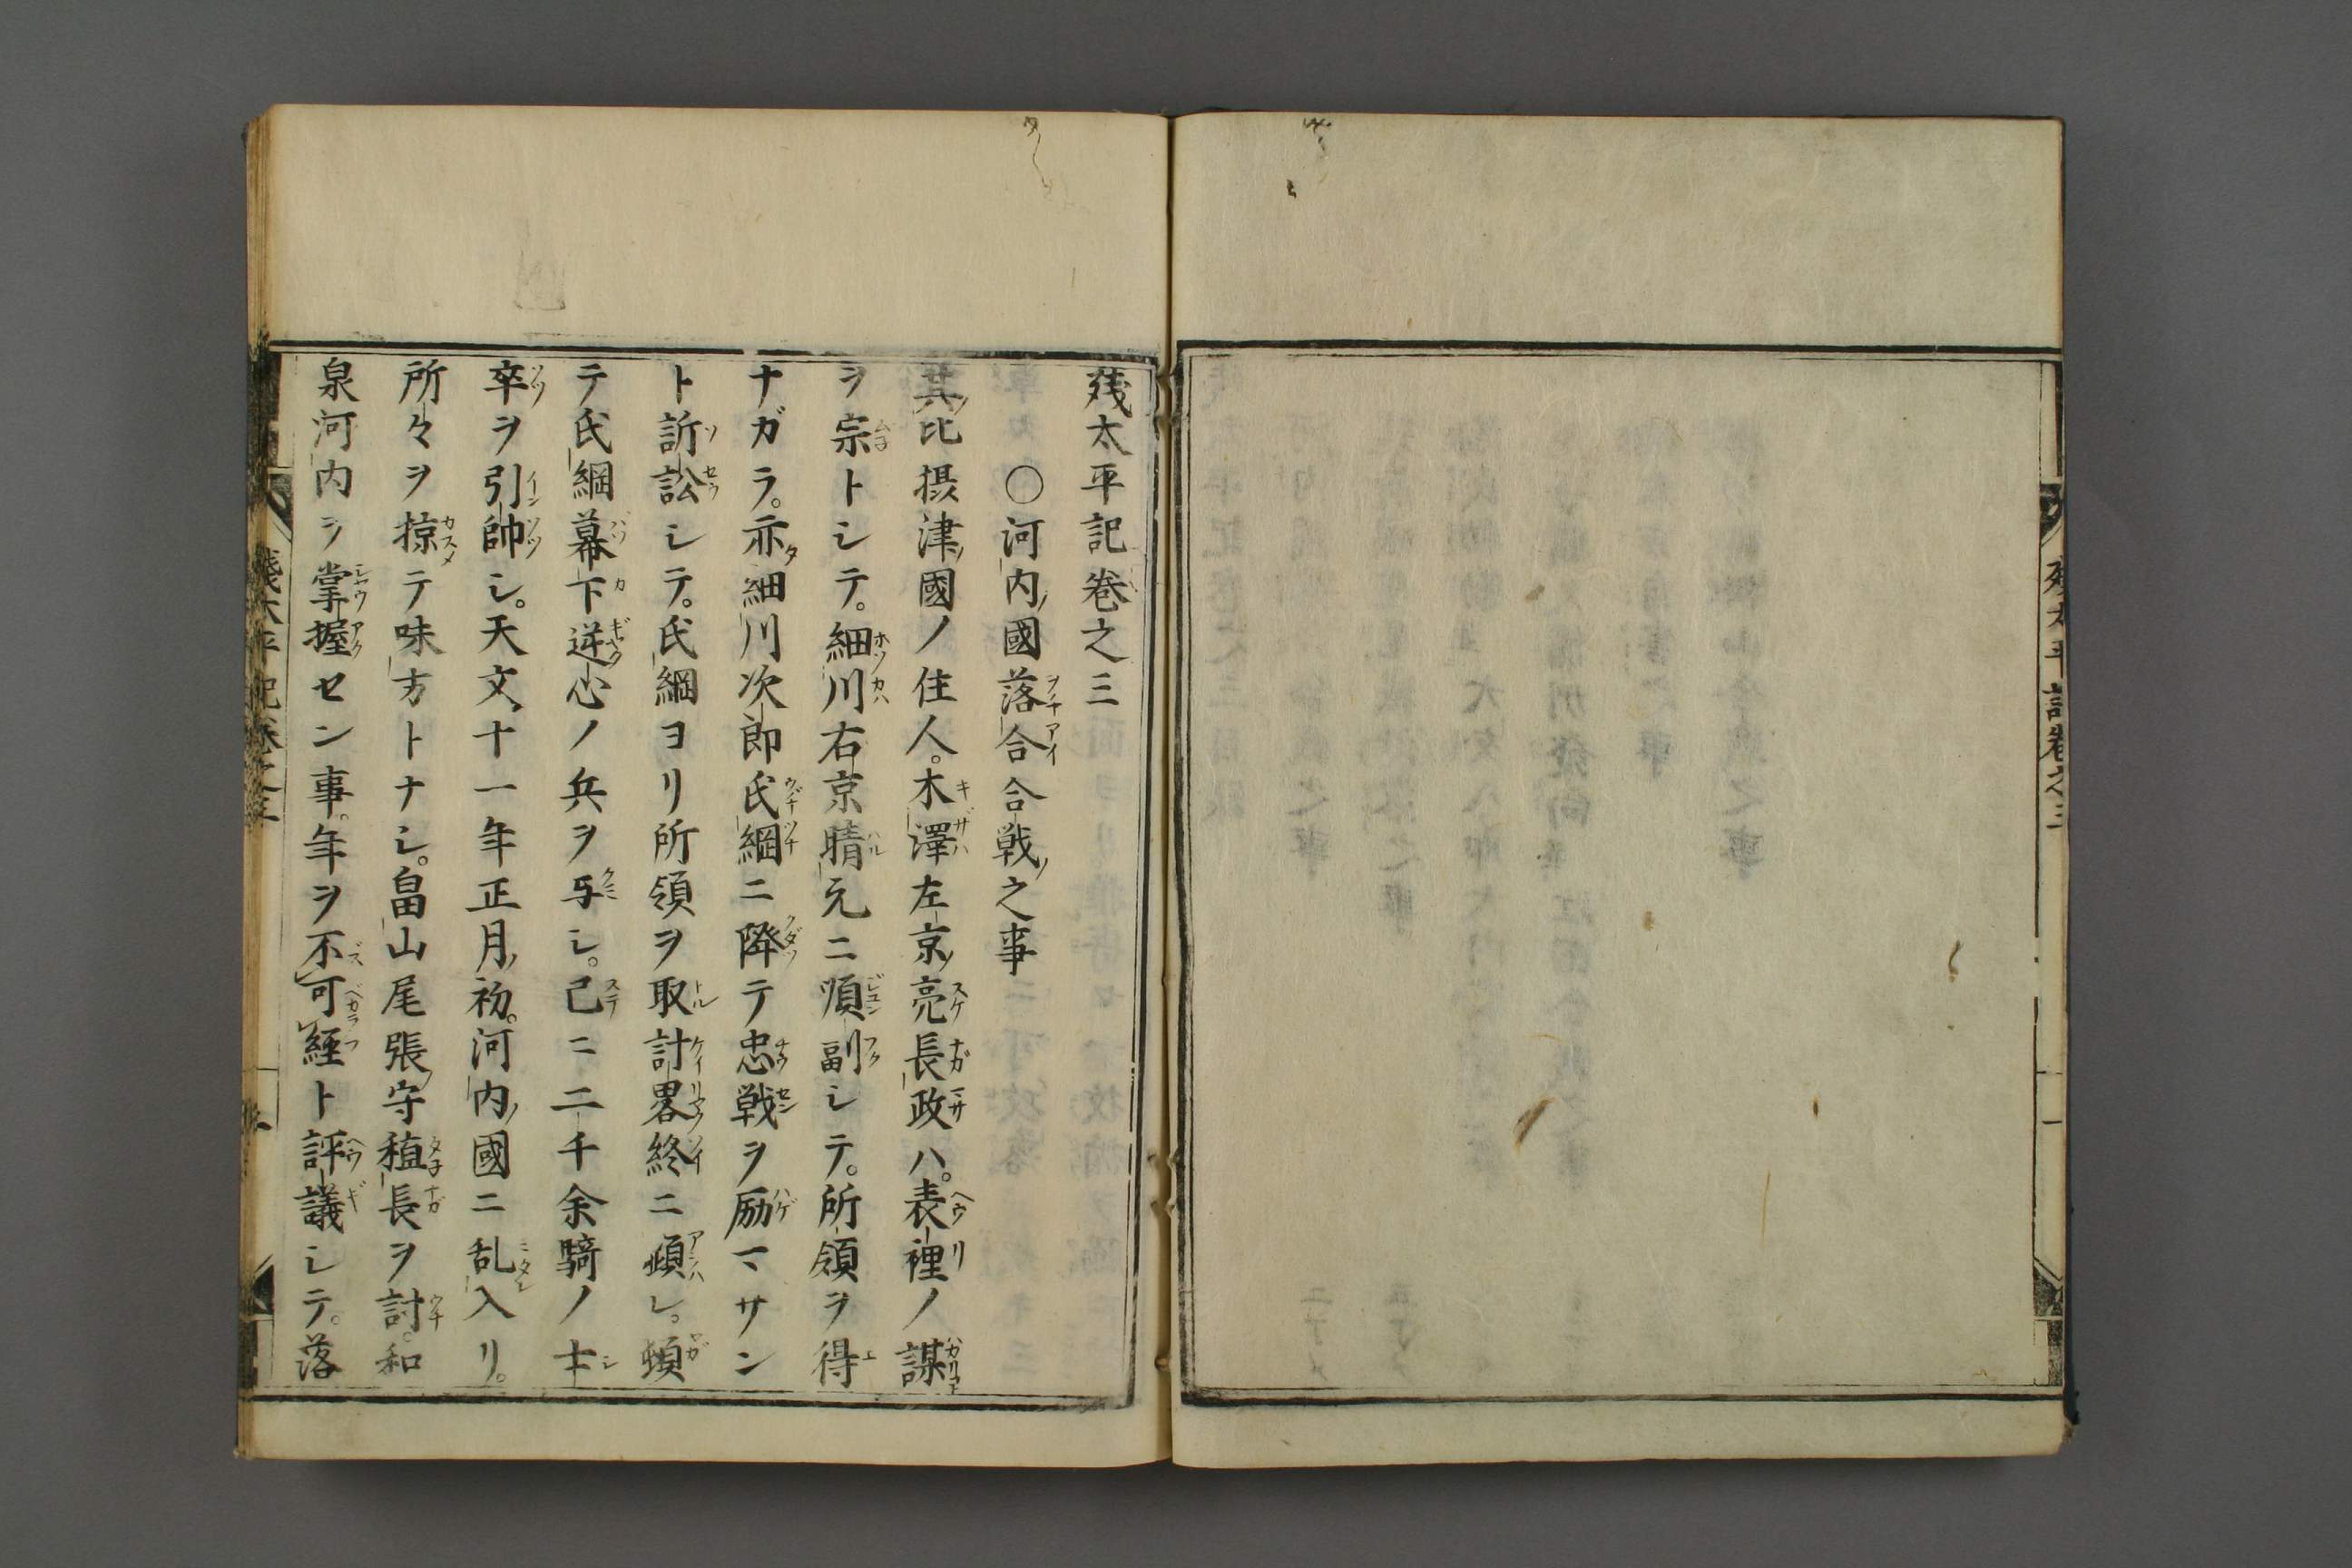 残太平記卷之三
〇河内ノ國落合合戦ノ之事
其比摂津ノ國ノ住人。木澤左京ノ亮長政ハ。表裡ノ謀
ヲ宗トシテ。細川右京晴元ニ順副シテ。所領ヲ得
ナガラ。亦細川次郎氏綱ニ降テ忠戦ヲ励マサン
ト訴訟シテ。氏綱ヨリ所領ヲ取計畧終ニ顕レ。頓
テ氏綱幕下逆心ノ兵ヲ与シ。已ニ二千余騎ノ士
卒ヲ引帥シ。天文十一年正月ノ初。河内ノ國ニ乱入リ。
所々ヲ掠テ味方トナシ。畠山尾張ノ守稙長ヲ討。和
泉河内ヲ掌握セン事。年ヲ不可経ト評議シテ。落
残太平記卷之三
残太平記卷之三
一